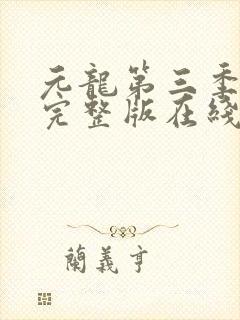 元龍第三季
完整版在綫
蘭義亨